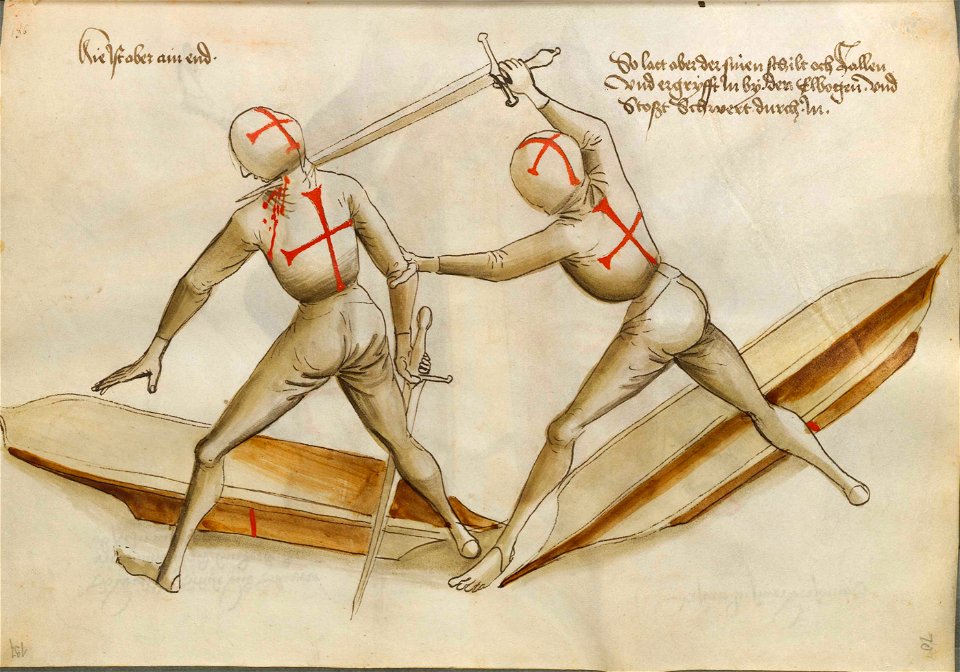 Hie ist aber ain end.
So latt aber der sinen schilt och Vallen
Vnd ergryfft In by der Elbogen. vnd
Stoszt Schwert durch In.
70